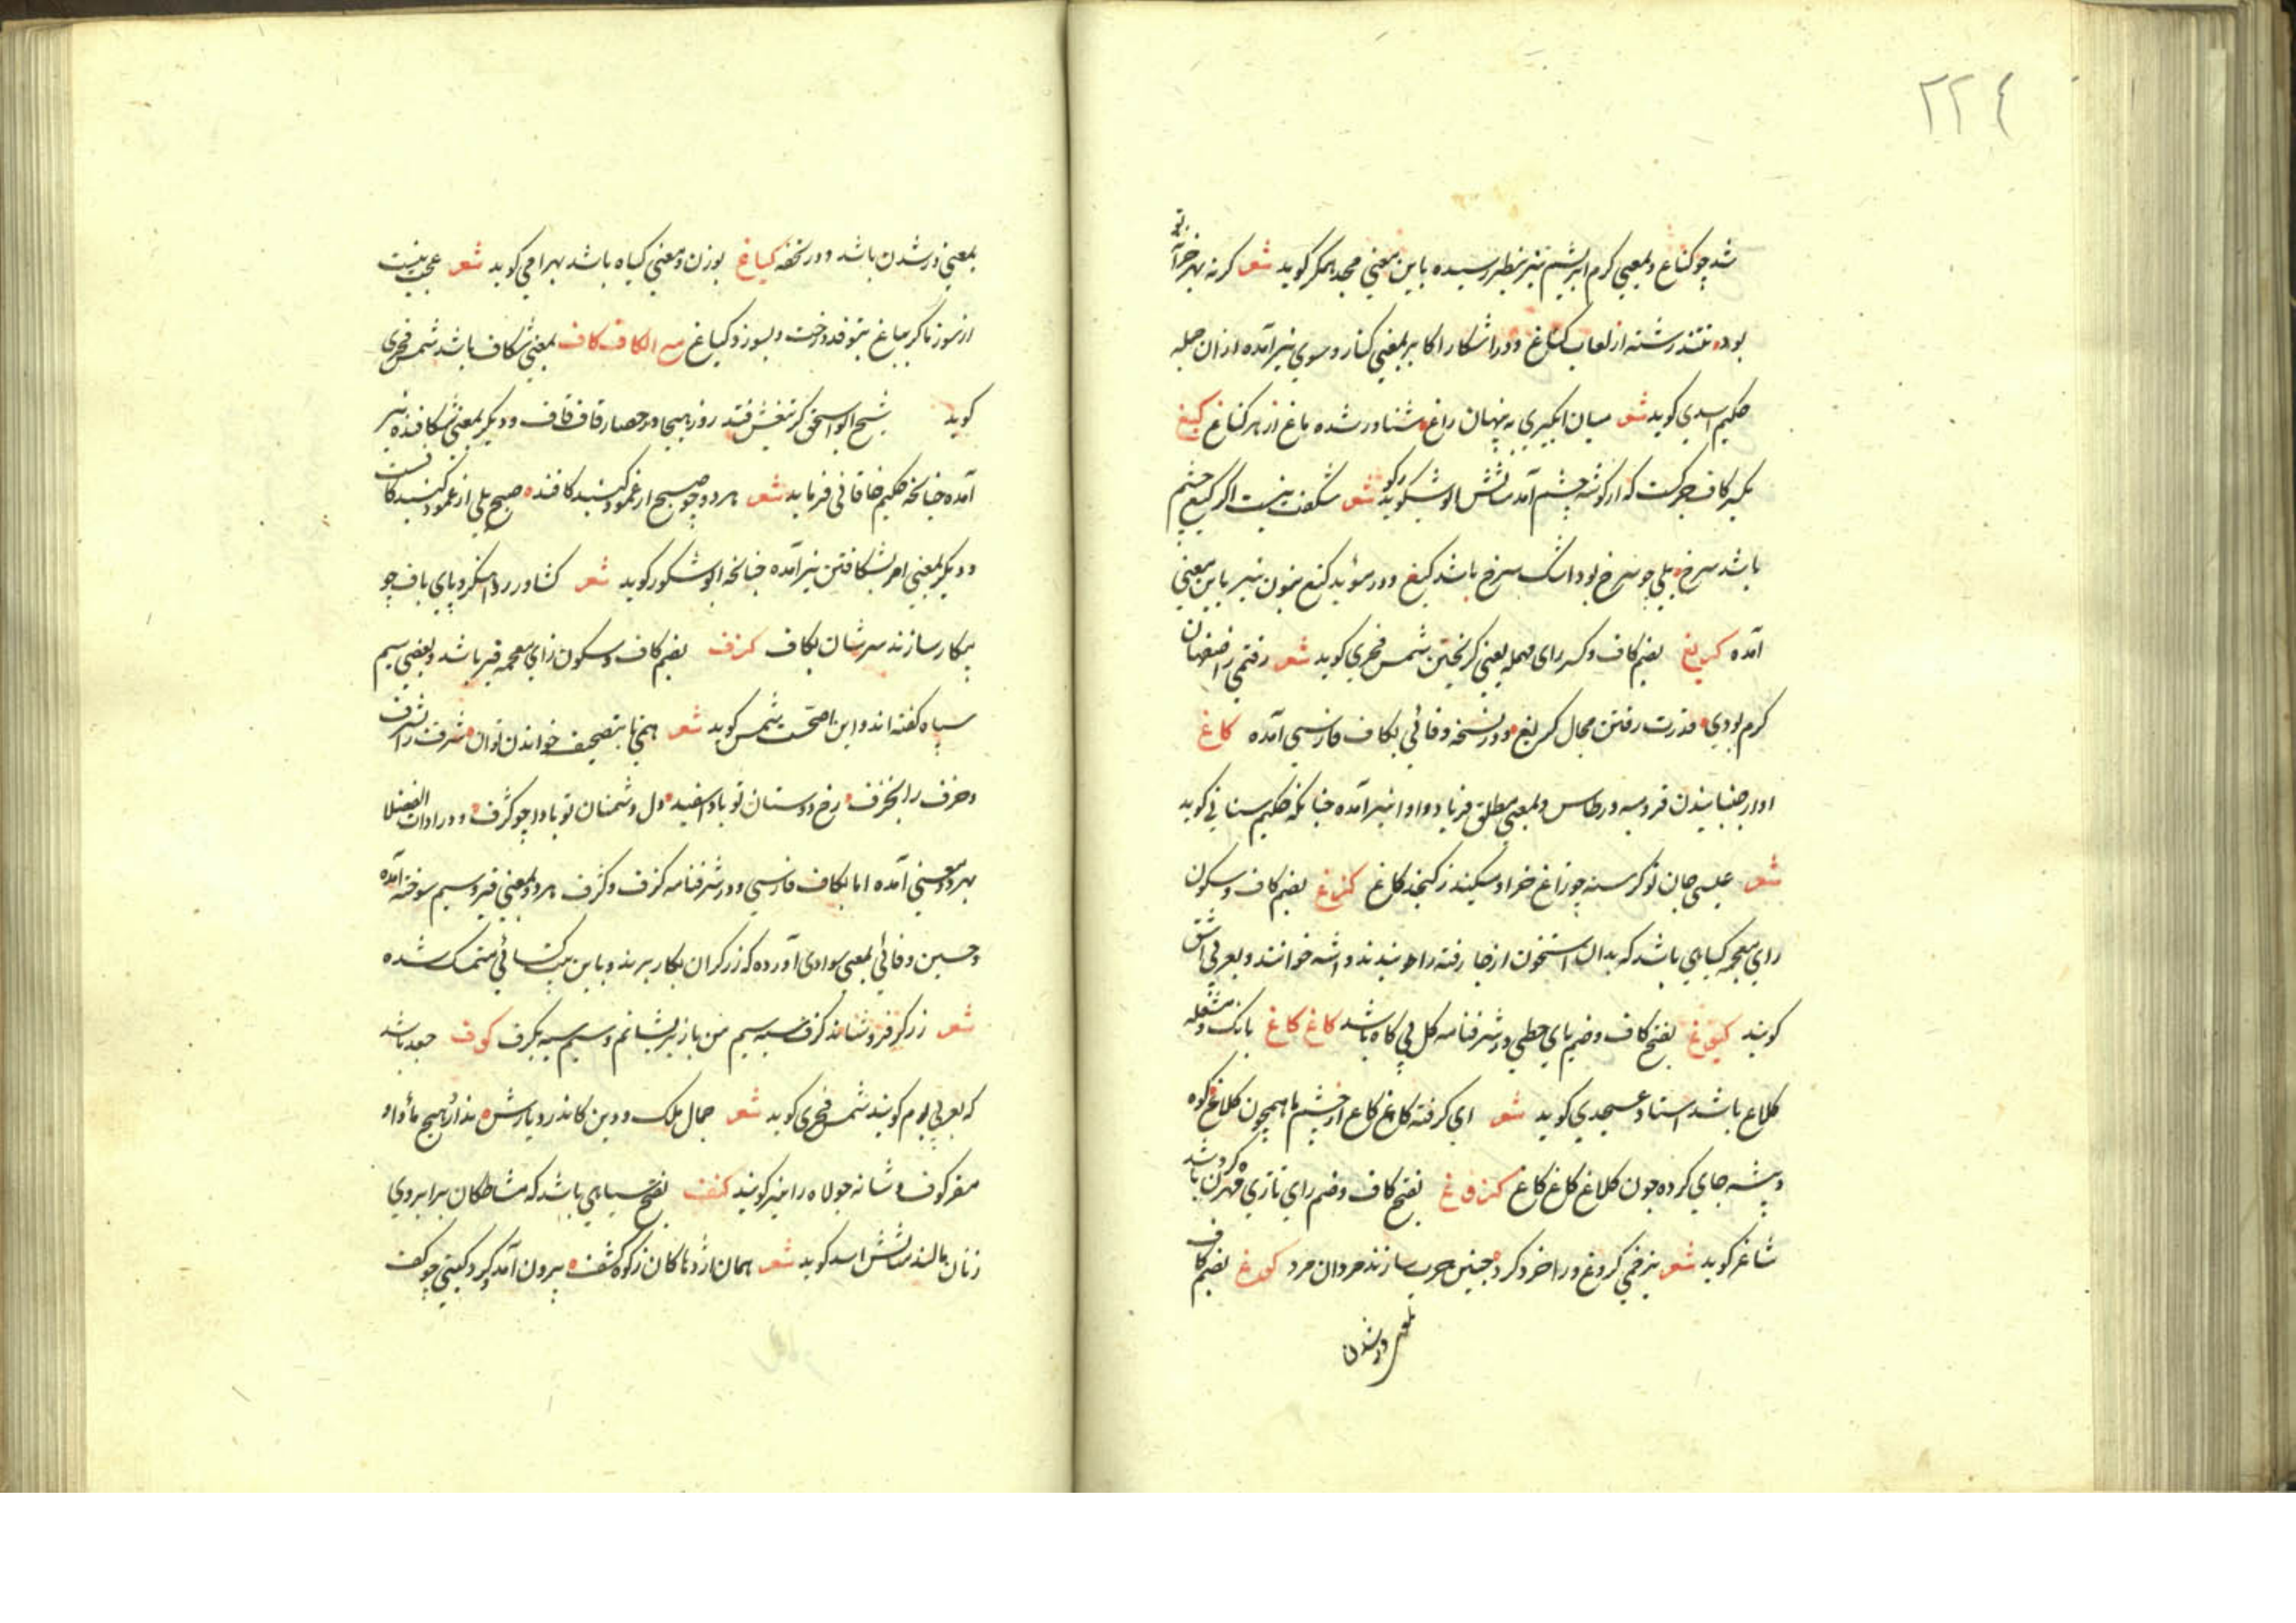 ٢٢٤
شد چو کناغ و بمعنی کرم ابریشم نیز بنظر رسیده باین معنی مجد همکر کوید شعر کرنه بهر
بود تنند رشته از لعاب کناغ و در اشکار اکابر بمعنی کنار و سوی نیز آمده از ان جمله
حکیم اسدی کوید شعر میان ابکیری به پهنان راغ شناور شده باغ از هر کناغ کیغ
بکسر کاف چرکست که از کوشه چشم آمد مثالش ابو شکور کوید شعر شکفت نیست اگر کیغ چشم
باشد سرخ بلی چو سرخ بود اشک سرخ باشد کیغ و در مؤید کنغ بنون نیز باین معنی
آمده کریغ بضم کاف و کسر رای مهمله یعنی کریختن شمس فخری کوید شعر رفتمی
کرم بودی قدرت رفتن مجال کریغ و در نسخه وفائی بکاف فارسی آمده کاغ
اواز جنبانیدن و بمعنی مطلق فریاد و اواز نیز آمده چنانکه حکیم سنایی کوید
شعر عیسی جان تو کرسنه چو زاغ خر او میکند ز کنجد کاغ کزاغ بضم کاف و سکون
زای معجمه کیاهی باشد که بدان استخوان از جا رفته را بندند و اشه خوانند و بعربی اشق
کویند کیوغ بفتح کاف و ضم یای حطی در شرفنامه کل بی کاه باشد کاغ کاغ بانک و مشغله
کلاغ باشد استاد عسجدی کوید شعر ای کرفته کاغ کاغ از خشم ما همچون کلاغ کوه
و بیشه جای کرده چون کلاغ کاغ کاغ کزوغ بفتح کاف و ضم زای تازی مهره کردن باشد
شاعر کوید شعر بزخمی کزوغ ورا خرد کرد چنین حرب سازند مردان مرد کوغ بضم کاف
بمعنی درشدن
بمعنی درشدن باشد و در تحفه کیاغ بوزن و معنی کیاه باشد بهرامی کوید شعر عجب نیست
از سوز ما کر بباغ بتوفد درخت و بسوزد کیاغ مع الکاف کاف بمعنی شکاف باشد شمس فخری
کوید شیخ ابو اسحق کز تیغش فتد روز هیجا در حصار قاف قاف و دیکر بمعنی شکافنده نیز
آمده چنانکه حکیم خاقانی فرماید شعر هر دو چو صبح از عمود کنبد کافند صبح بلی از عمود کنبد کافست
و دیکر بمعنی امر بشکافتن نیز آمده چنانچه ابو شکور کوید شعر کشاورز و اهنکر و پای باف چو
بیکار سازند سرشان بکاف کزف بضم کاف و سکون زای معجمه قیر باشد و بعضی سیم
سیاه کفته اند و این اصحست شمس کوید شعر همی تا بتصحیف خواندن توان شرف را
و حرف را بخزف رخ دوستان تو بادا سفید دل دشمنان تو بادا چو کژف و در ادات الفضلا
بهر دو معنی آمده اما بکاف فارسی و در شرفنامه کزف و کژف هر دو بمعنی قیر و سیم سوخته آمده
و حسین وفائی بمعنی سوادی آورده که زرکران بکار برند و باین بیت کسائی متمسک شده
شعر زرکر فرو شاند کزف سیه بسیم من باز بر نشانم سیم سیه بکزف کوف جغد باشد
که بعربی بوم کویند شمس فخری کوید شعر جمال ملک و دین کاندر دیارش ندارد هیج ماوا و
مقر کوف و شانه جولاه را نیز کویند کنف بفتح سیاهی باشد که مشاطکان بر ابروی
زنان مالند مثالش اسد کوید شعر همان اژدها کان ز کوه کشف برون آمد و کرد کیتی چو کف